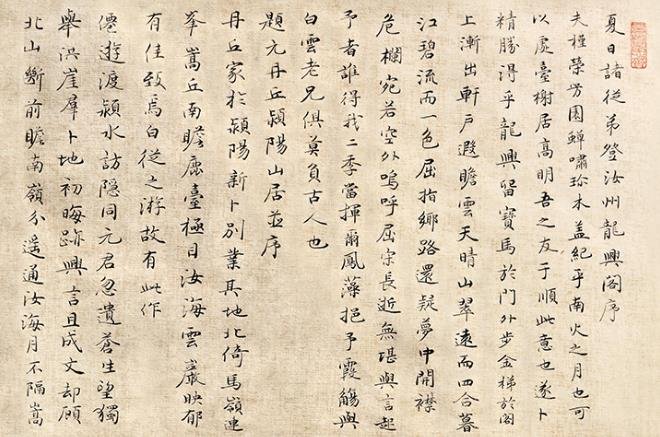 夏日諸從弟登汝州龍興閣序
夫槿榮芳園蟬嘯珍木蓋紀乎南火之月也可
以處臺榭居高明吾之友于順此意也遂卜
精勝得乎龍興留寶馬於門外步金梯於閣
上漸出軒戶遐瞻雲天晴山翠遠而四合暮
江碧流而一色屈指鄉路還疑夢中開襟
危欄宛若空外嗚呼屈宋長逝無堪與言起
予者誰得我二季當揮爾鳳藻挹予霞觴與
白雲老兄俱莫負古人也
題元丹丘潁陽山居並序
丹丘家於潁陽新卜別業其地北倚馬嶺連
峯嵩丘南瞻鹿臺極目汝海雲巖映郁
有佳致焉白從之游故有此作
僊遊渡潁水訪隱同元君忽遺蒼生望獨
與洪崖羣卜地初晦跡興言且成文却顧
北山斷前瞻南嶺分遙通汝海月不隔嵩